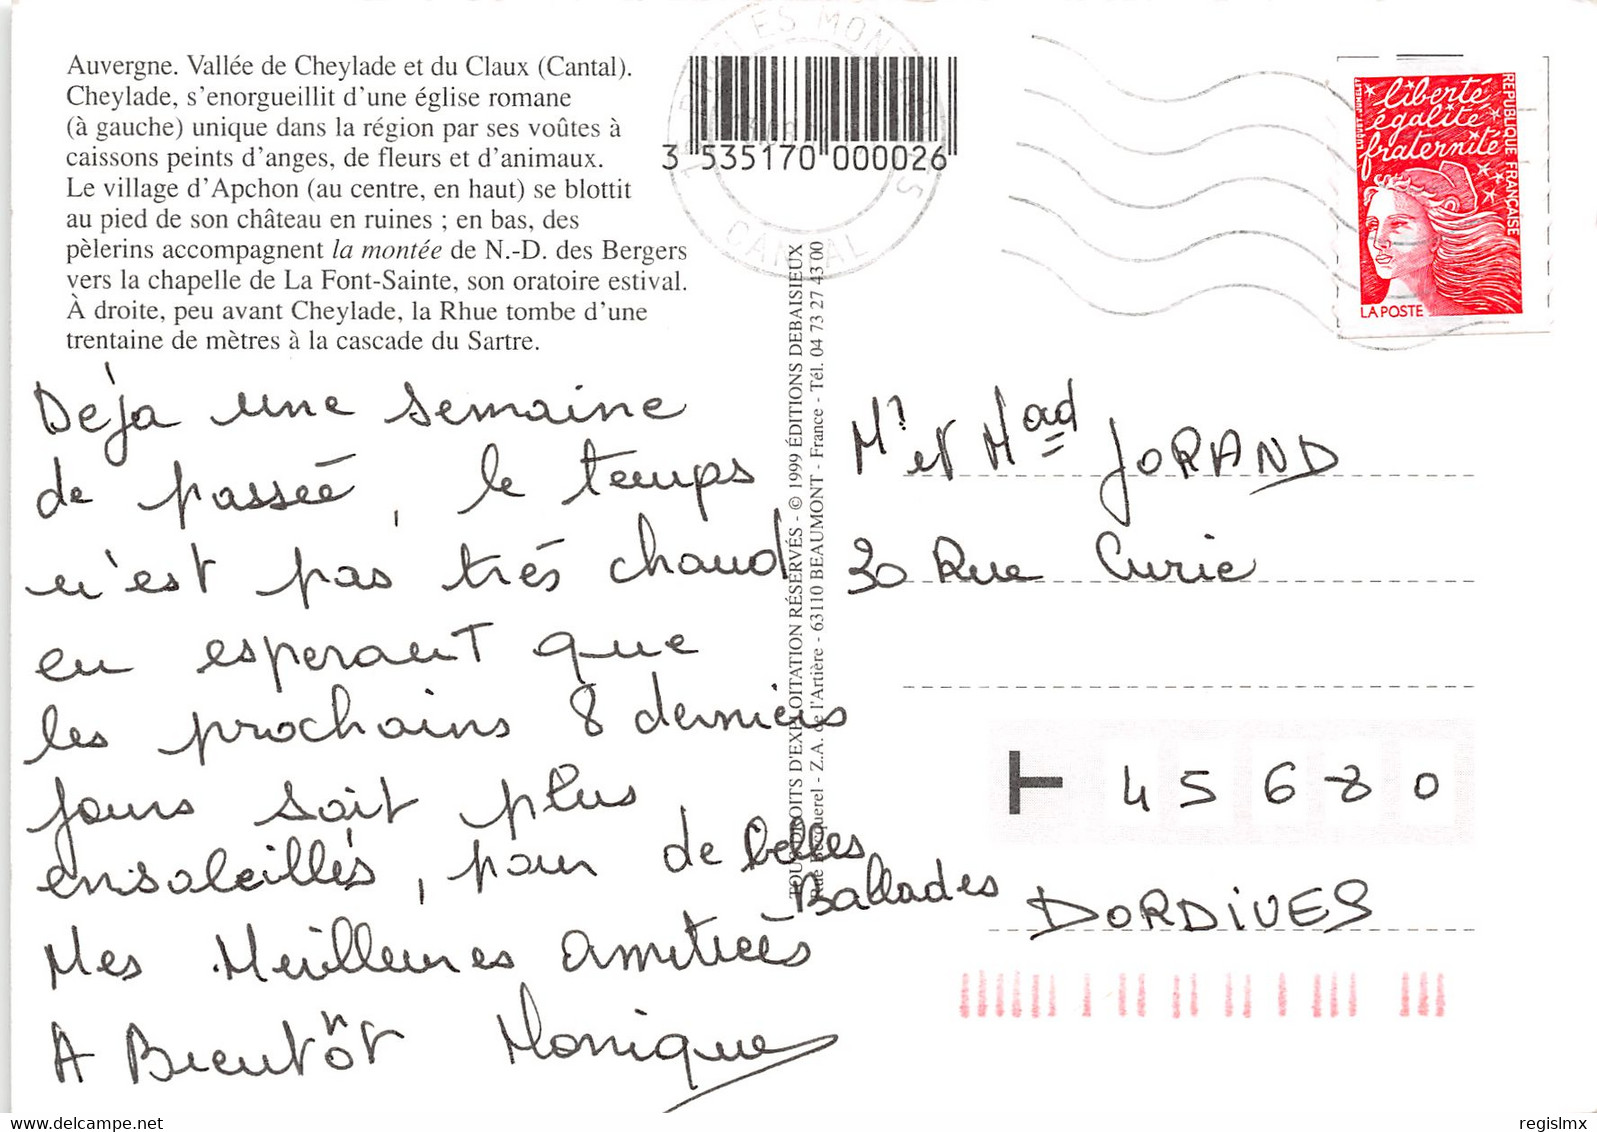 Auvergne. Vallée de Cheylade et du Claux (Cantal).
Cheylade, s'enorgueillit d'une église romane
(à gauche) unique dans la région par ses voûtes à
caissons peints d'anges, de fleurs et d'animaux.
Le village d'Apchon (au centre, en haut) se blottit
au pied de son château en ruines ; en bas, des
pèlerins accompagnent la montée de N.-D. des Bergers
vers la chapelle de La Font-Sainte, son oratoire estival.
À droite, peu avant Cheylade, la Rhue tombe d'une
trentaine de mètres à la cascade du Sartre.
3 535170 000026
CANTAL
liberté
égalité
fraternité
REPUBLIQUE FRANÇAISE
LA POSTE
Déja une semaine
de passée, le temps
n'est pas très chaud
en esperant que
les prochains 8 derniers
jours soit plus
ensoleillés, pour de belles
Ballades
Mes Meilleures amitiées
A Bientôt Monique
TOUS DROITS D'EXPLOITATION RÉSERVÉS - © 1999 ÉDITIONS DEBAISIEUX
Rue Becquerel - Z.A. de l'Artière - 63110 BEAUMONT - France - Tél. 04 73 27 43 00
Mr et Mad JORAND
30 Rue Curie
45680
DORDIVES
delcampe.net
regislmx